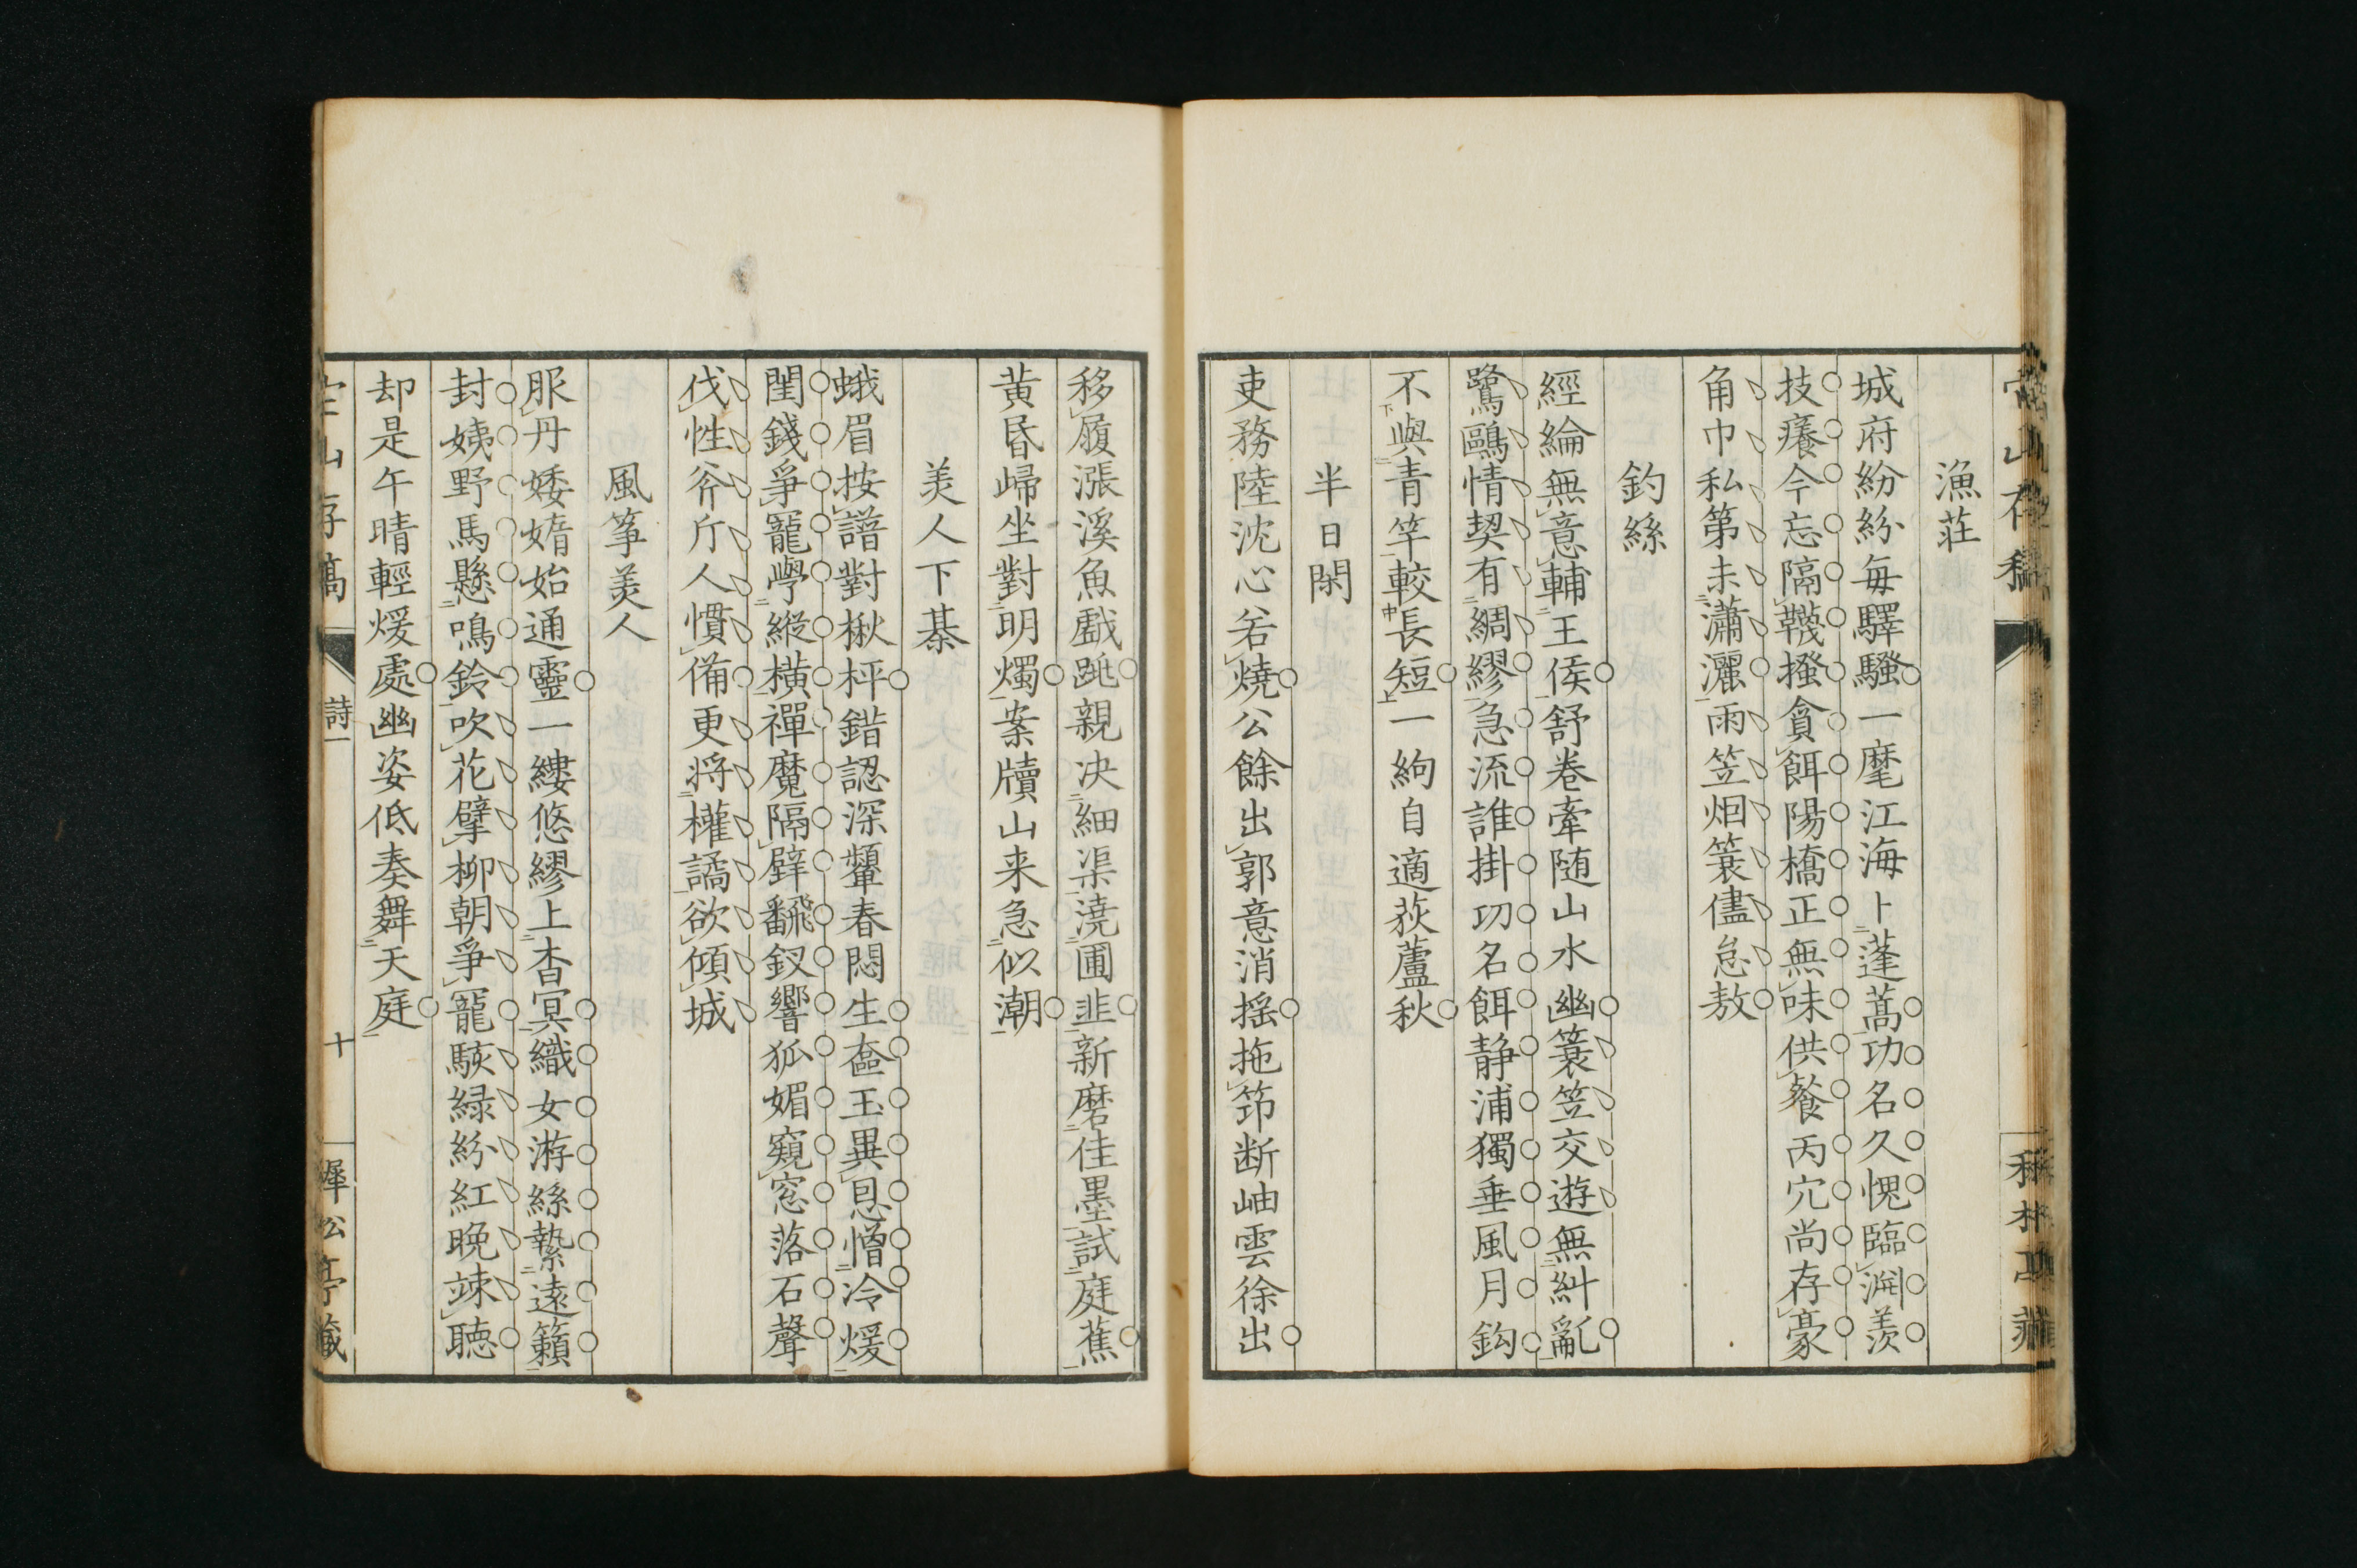 漁莊
城府紛紛毎驛騷一麾江海卜蓬蒿功名久愧臨淵羨
技癢今忘隔韈搔貪餌陽橋正無味供餐丙穴尚存豪
角巾私第未瀟灑雨笠烟簑儘怠敖
釣絲
經綸無意輔王侯舒卷牽随山水幽簑笠交遊無糾亂
鷺鷗情契有綢繆急流誰掛功名餌静浦獨垂風月鈎
不與青竿較長短一絢自適荻蘆秋
半日閑
吏務陸沈心若燒公餘出郭意消搖拖筇断岫雲徐出
移履漲溪魚戲跳親决細渠澆圃韭新磨佳墨試庭蕉
黄昏歸坐對明燭案牘山来急似潮
美人下棊
蛾眉按譜對楸枰錯認深顰春悶生奩玉異恩憎冷煖
閨錢爭寵學縱橫禪魔隔壁飜釵響狐媚窺窓落石聲
伐性斧斤人慣備更将權譎欲傾城
風筝美人
服丹婑媠始通靈一縷悠繆上杳冥織女游絲縶遠籟
封姨野馬懸鳴鈴吹花擘柳朝爭寵駭緑紛紅晩竦聴
却是午晴輕煖處幽姿低奏舞天庭
詩一
十